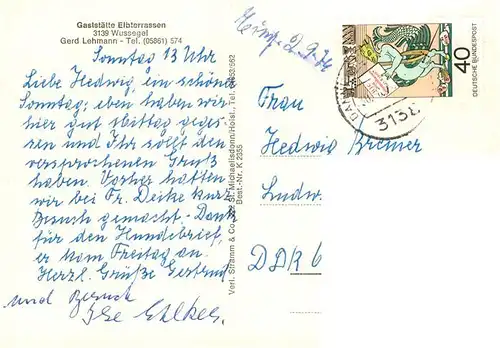 Gaststätte Elbterrassen
3139 Wussegel
Gerd Lehmann - Tel. (05861) 574
Sonntag 13 Uhr
Liebe Hedwig, ein schönen
Sonntag, eben haben wir
hier gut Mittag geges-
sen und Ihr sollt den
versprochenen Gruß
haben. Vorher hatten
wir bei Fr. Deike kurz
Besuch gemacht. Dank
für den Hundebrief,
er kam Freitag an.
Herzl. Grüße Gertrud
und
Ilse
Verl. Stramm & Co. St. Michaelisdonn/Holst., Tel.
Best.-Nr. K 2355
40
DEUTSCHE BUNDESPOST
DAN
3138
Frau
Hedwig Bremer
Ludw.
DDR 6